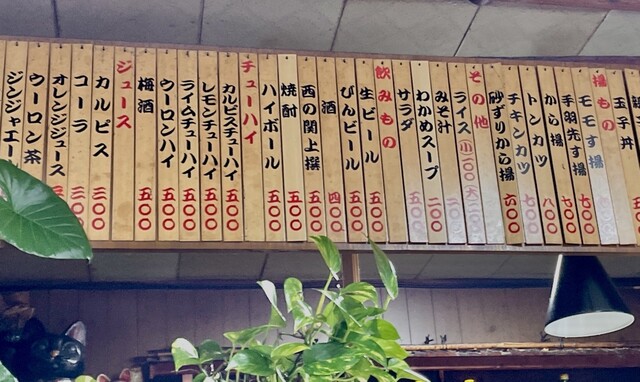 玉子丼
揚もの
モモす揚
手羽先す揚 七〇〇
から揚 八〇〇
トンカツ 七〇〇
チキンカツ 六〇〇
砂ずりから揚
その他
ライス 小一〇〇 大二〇〇
みそ汁
わかめスープ 二〇〇
サラダ
飲みもの
生ビール 五〇〇
びんビール 五〇〇
酒 四〇〇
西の関上撰 五〇〇
焼酎 五〇〇
ハイボール 五〇〇
チューハイ
カルピスチューハイ 五〇〇
レモンチューハイ 五〇〇
ライムチューハイ 五〇〇
ウーロンハイ 五〇〇
梅酒 五〇〇
ジュース
カルピス 三〇〇
コーラ 三〇〇
オレンジジュース
ウーロン茶
ジンジャエー